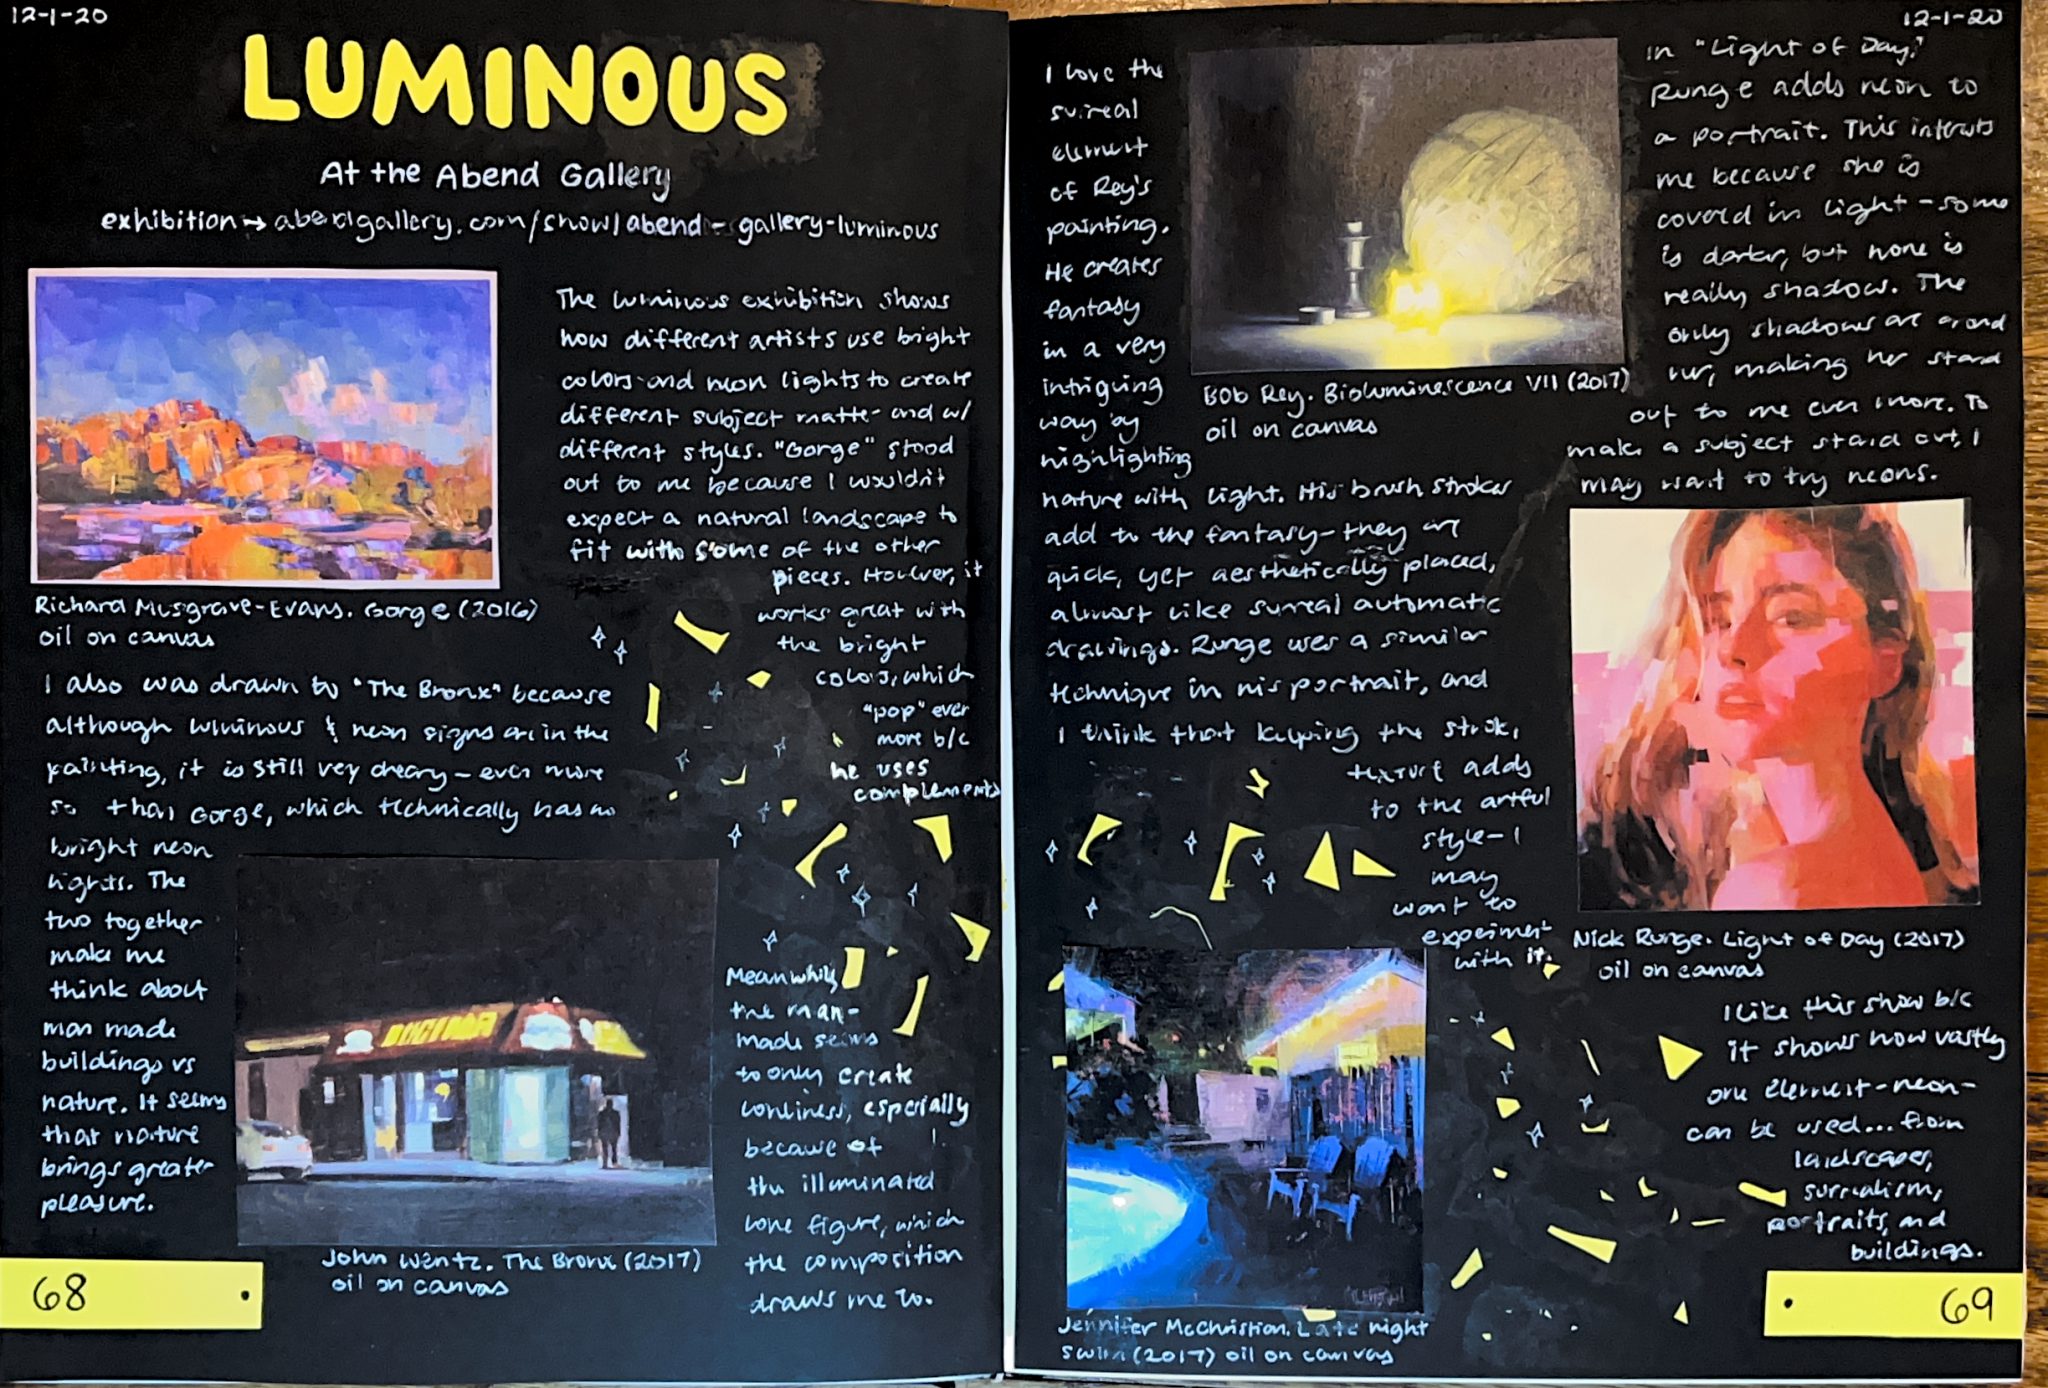 12-1-20
LUMINOUS
At the Abend Gallery
exhibition→ abendgallery.com/show/abend-gallery-luminous
The luminous exhibition shows
how different artists use bright
colors and neon lights to create
different subject matter and w/
different styles. "Gorge" stood
out to me because I wouldn't
expect a natural landscape to
fit with some of the other
pieces. However, it
works great with
the bright
colors, which
"pop" ever
more b/c
he uses
complements
Richard Musgrave-Evans. Gorge (2016)
oil on canvas
I also was drawn to "The Bronx" because
although luminous & neon signs are in the
painting, it is still very dreary - even more
so than Gorge, which technically has no
bright neon
lights. The
two together
make me
think about
man made
buildings vs
nature. It seems
that nature
brings greater
pleasure.
John Wentz. The Bronx (2017)
oil on canvas
Meanwhile,
the man-
made seems
to only create
lonliness, especially
because of
the illuminated
lone figure, which
the composition
draws me to.
68
12-1-20
I love the
surreal
element
of Rey's
painting.
He creates
fantasy
in a very
intriguing
way by
highlighting
nature with light. His brush strokes
add to the fantasy - they are
quick, yet aesthetically placed,
almost like surreal automatic
drawings. Runge uses a similar
technique in his portrait, and
I think that keeping the stroke
texture adds
to the artful
style - I
may
want to
experiment
with it.
Bob Rey. Bioluminescence VII (2017)
oil on canvas
In "Light of Day,"
Runge adds neon to
a portrait. This interests
me because she is
covered in light - some
is darker, but none is
really shadow. The
only shadows are around
her, making her stand
out to me even more. To
make a subject stand out, I
may want to try neons.
Nick Runge. Light of Day (2017)
oil on canvas
I like this show b/c
it shows how vastly
one element - neon -
can be used... from
landscapes,
surrealism,
portraits, and
buildings.
Jennifer McChristian. Late night
swim (2017) oil on canvas
69